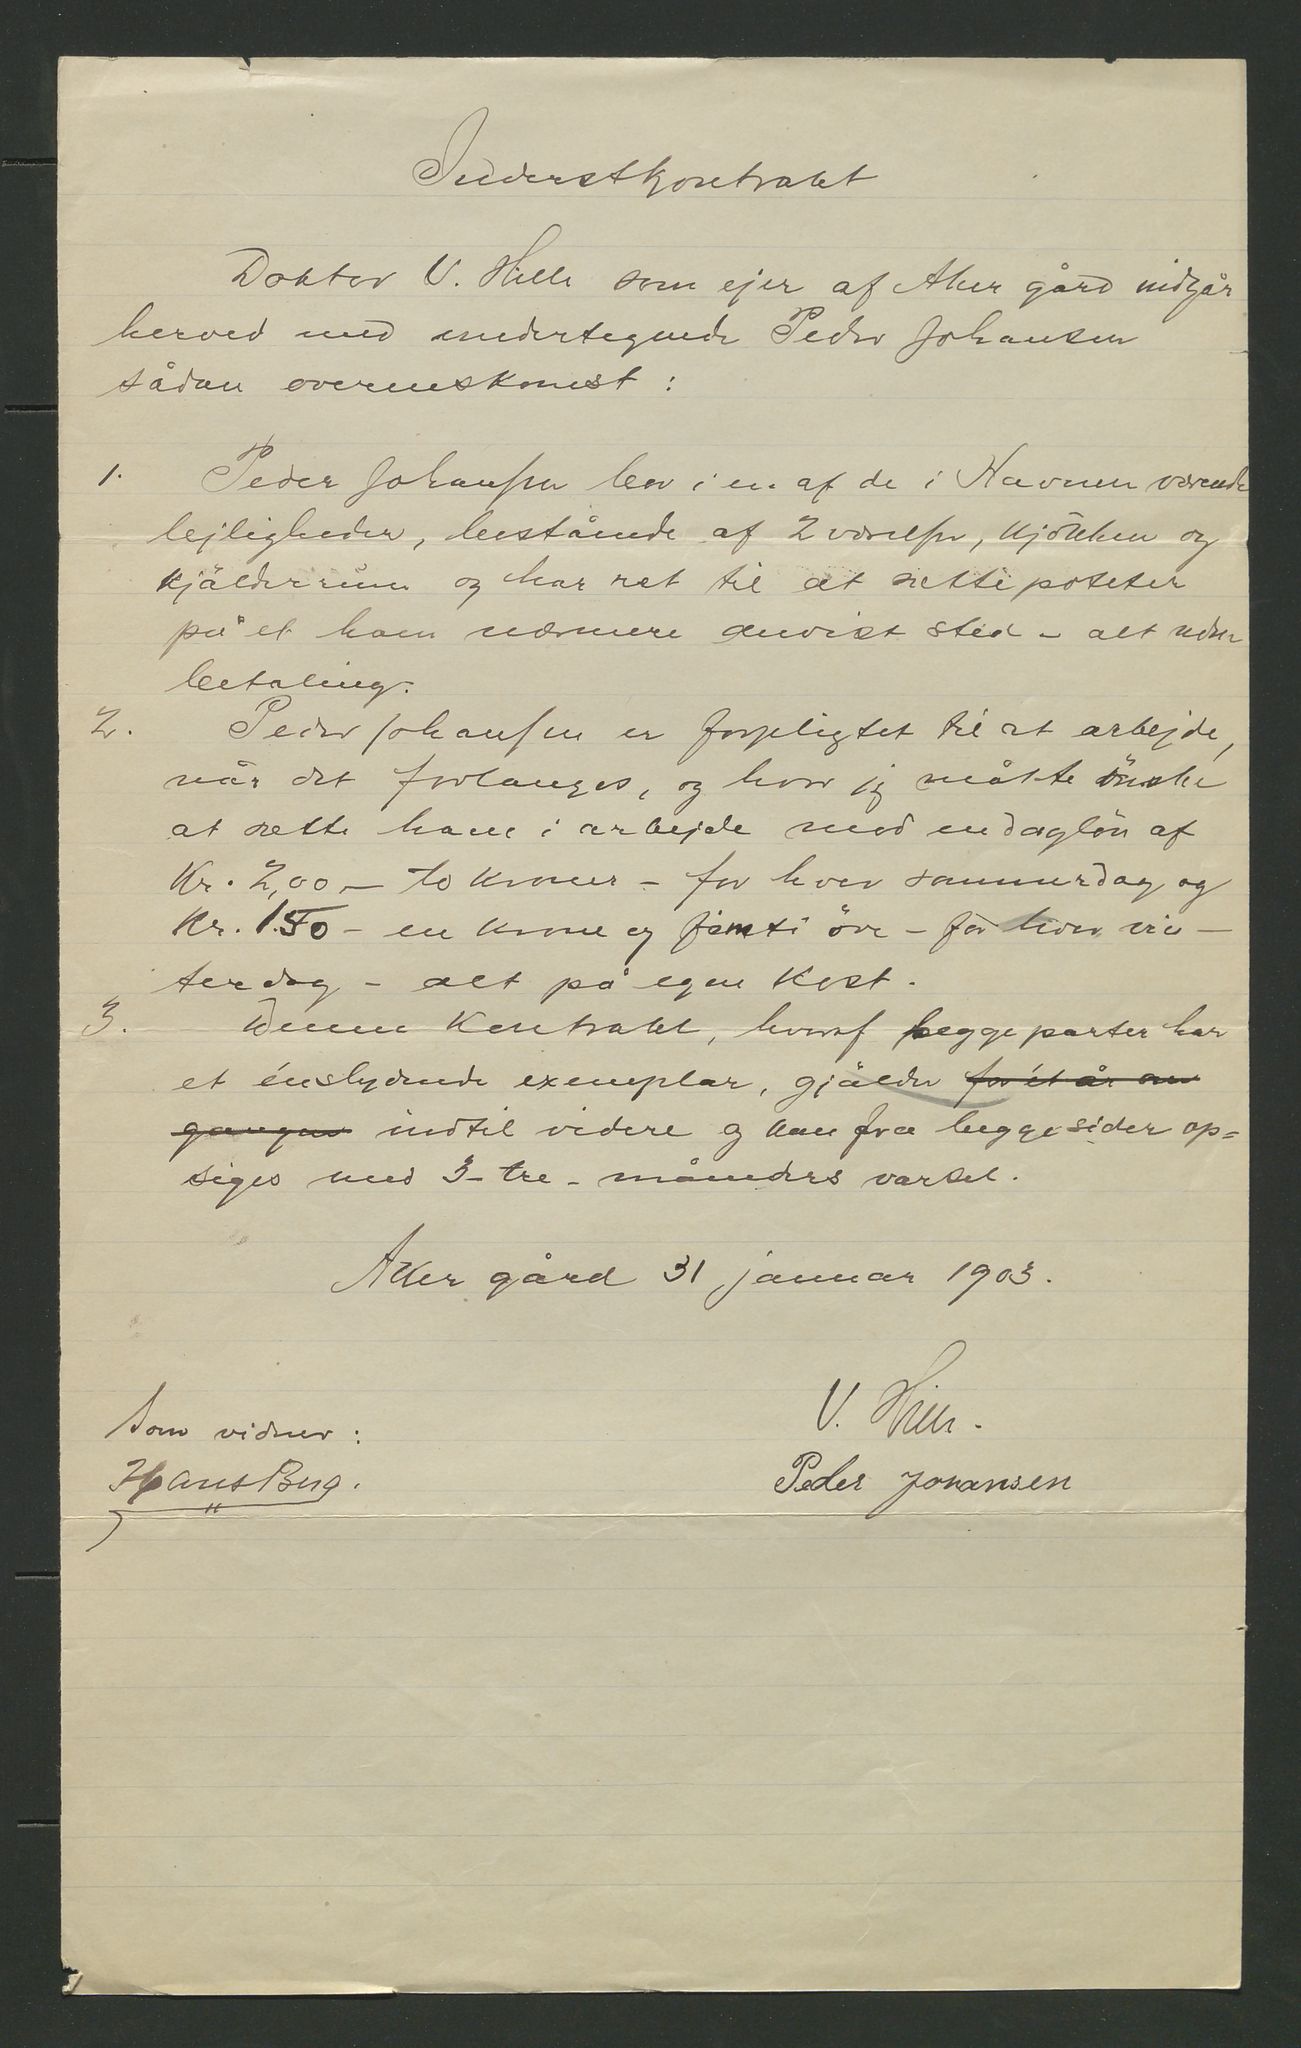 Inderstkontrakt
Doktor V. Hille som ejer af Aker gård indgår
herved med undertegnede Peder Johansen
sådan overenskomst:
1. Peder Johansen bor i en af de i Havnen værende
lejligheder, bestående af 2 værelser, kjökken og
kjälderrum og har ret til at sette poteter
på et ham nærmere anvist sted - alt uden
betaling.
2. Peder Johansen er forpligtet til at arbejde,
når det forlanges, og hvor jeg måtte önske
at sette ham i arbejde mod en daglön af
Kr. 2,00 - to kroner - for hver sommerdag og
Kr. 1.50 - en krone og femti öre - for hver vin-
terdag - alt på egen kost.
3. Denne Kontrakt, hvoraf begge parter har
et énslydende exemplar, gjälder for ét år om
gangen indtil videre og kan fra begge sider op=
siges med 3 - tre - måneders varsel.
Aker gård 31 januar 1903.
V. Hille.
Som vidner:
Peder Johansen
Hans Berg.